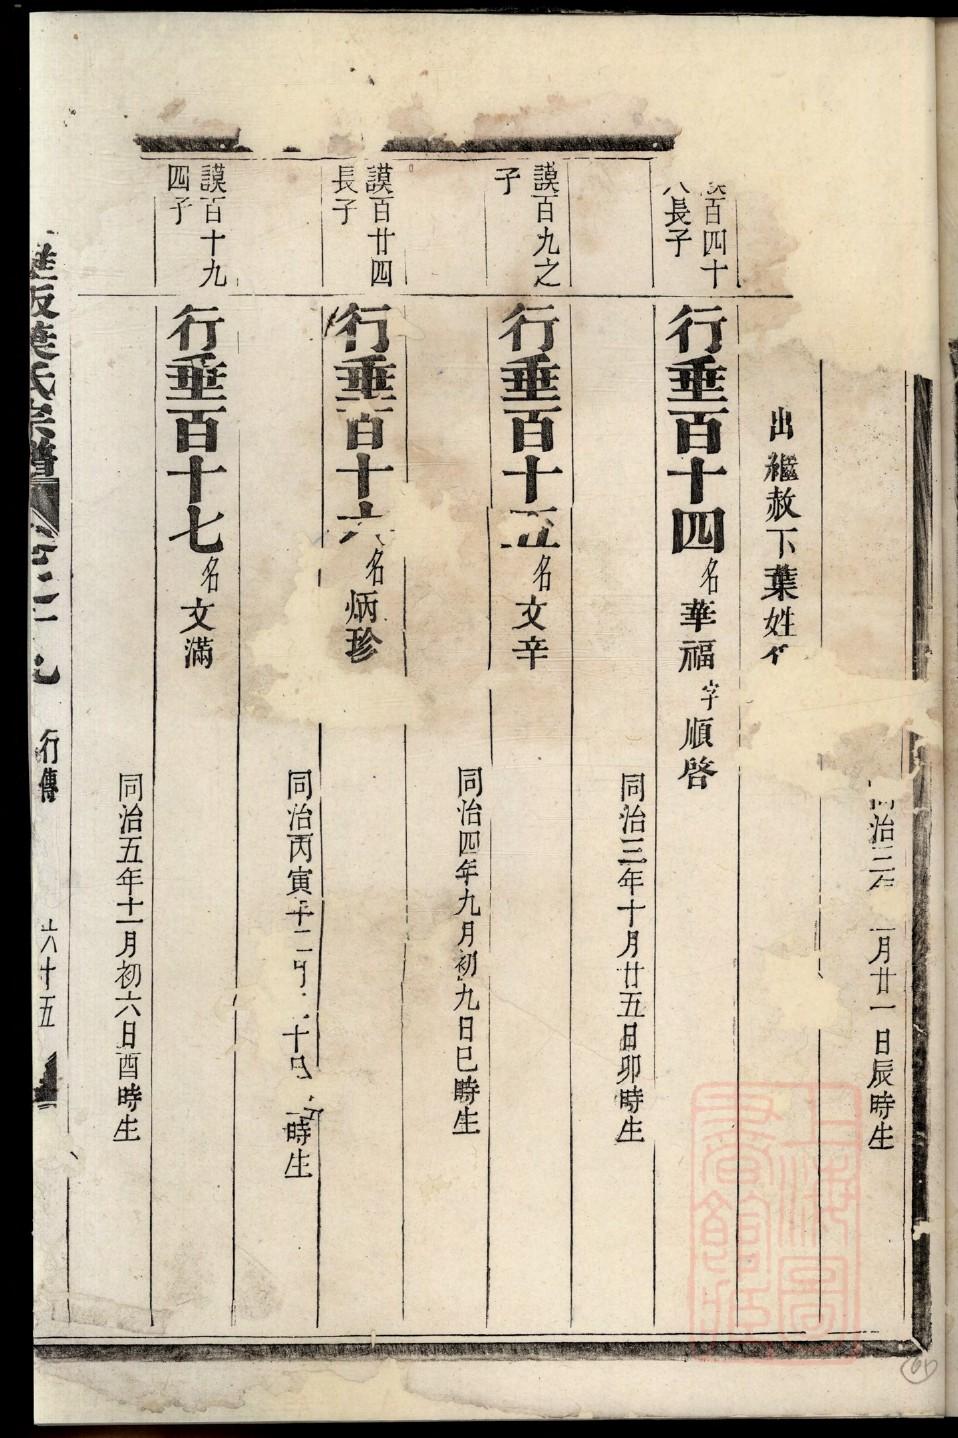 同治三年 月廿一日辰時生
出繼赦下葉姓
百四十
八長子
行垂百十四名華福字順啓
同治三年十月廿五日卯時生
謨百九之
子
行垂百十五名文辛
同治四年九月初九日巳時生
謨百廿四
長子
行垂百十六名炳珍
同治丙寅年二月 十 時生
謨百十九
四子
行垂百十七名文滿
同治五年十一月初六日酉時生
葉氏宗譜
行傳
六十五
上海圖書館藏